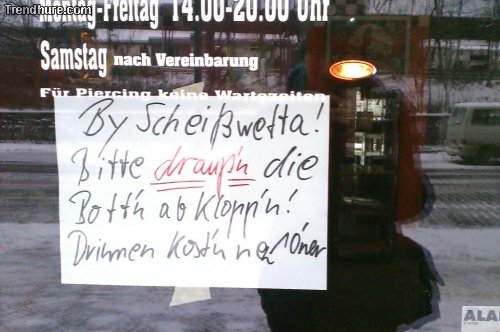 Trendhure.com
Montag-Freitag 14.00-20.00 Uhr
Samstag nach Vereinbarung
Für Piercing keine Wartezeiten
By Scheißwetta!
Bitte drauß'n die
Bott'n abklopp'n!
Drinnen kost'n na 10ner
ALA